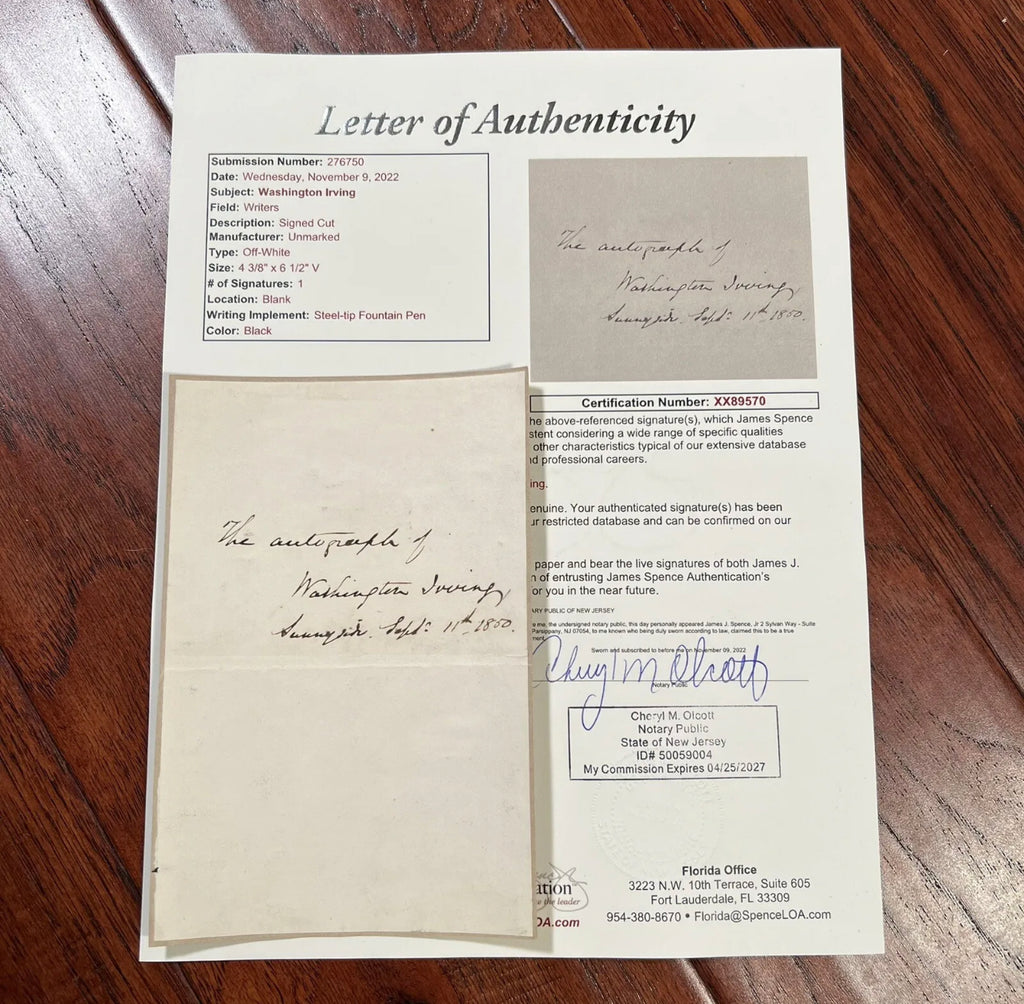 Letter of Authenticity
Submission Number: 276750
Date: Wednesday, November 9, 2022
Subject: Washington Irving
Field: Writers
Description: Signed Cut
Manufacturer: Unmarked
Type: Off-White
Size: 4 3/8" x 6 1/2" V
# of Signatures: 1
Location: Blank
Writing Implement: Steel-tip Fountain Pen
Color: Black
The autograph of
Washington Irving
Sunnyside. Sept: 11th 1850.
Certification Number: XX89570
he above-referenced signature(s), which James Spence
stent considering a wide range of specific qualities
other characteristics typical of our extensive database
nd professional careers.
ing.
enuine. Your authenticated signature(s) has been
ur restricted database and can be confirmed on our
paper and bear the live signatures of both James J.
n of entrusting James Spence Authentication's
or you in the near future.
ARY PUBLIC OF NEW JERSEY
e me, the undersigned notary public, this day personally appeared James J. Spence, Jr 2 Sylvan Way - Suite
Parsippany, NJ 07054, to me known who being duly sworn according to law, claimed this to be a true
ment.
Sworn and subscribed to before me on November 09, 2022
Cheryl M Olcott
Notary Public
Cheryl M. Olcott
Notary Public
State of New Jersey
ID# 50059004
My Commission Expires 04/25/2027
ation
the leader
OA.com
Florida Office
3223 N.W. 10th Terrace, Suite 605
Fort Lauderdale, FL 33309
954-380-8670 • Florida@SpenceLOA.com
The autograph of
Washington Irving
Sunnyside. Sept: 11th 1850.